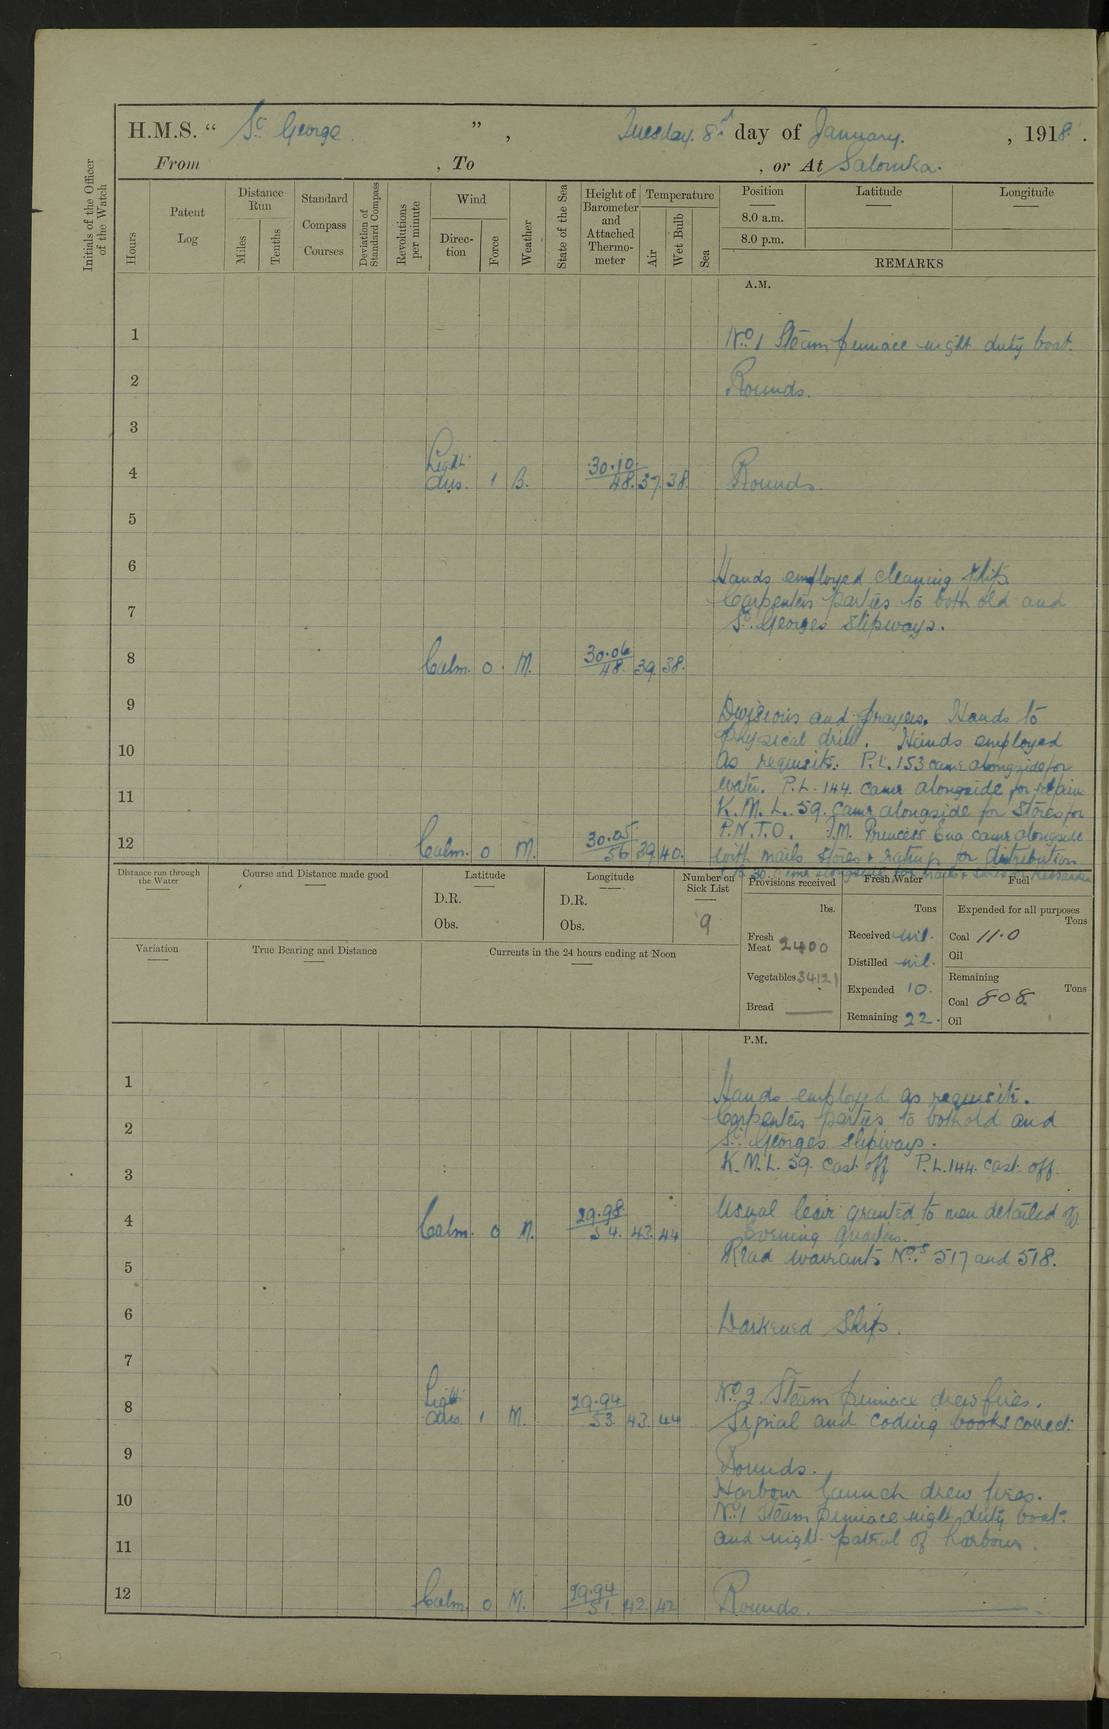 H.M.S. “ St George ” , Tuesday. 8th day of January. , 1918 .
From , To , or At Salonika.
Initials of the Officer of the Watch
Hours
Patent Log
Distance Run
Miles
Tenths
Standard Compass Courses
Deviation of Standard Compass
Revolutions per minute
Wind
Direction
Force
Weather
State of the Sea
Height of Barometer and Attached Thermometer
Temperature
Air
Wet Bulb
Sea
Position
Latitude
Longitude
8.0 a.m.
8.0 p.m.
REMARKS
A.M.
1 No. 1 Steam pinnace night duty boat.
2 Rounds.
3
4 Light airs. 1 B. 30.10 48. 37. 38. Rounds.
5
6 Hands employed cleaning ship
Carpenters parties to both old and
7 St. Georges slipways.
8 Calm. 0. M. 30.06 48. 39. 38.
9 Divisions and prayers. Hands to
physical drill. Hands employed
10 as requisite. P.L. 153 came alongside for
water. P.L. 144. came alongside for repair
11 K.M.L. 59. came alongside for stores for
P.N.T.O. Princess Ena came alongside
12 Calm. 0 M. 30.05 56 39. 40. with mails stores + ratings for distribution
came alongside for mails + stores
Distance run through the Water
Course and Distance made good
Latitude
D.R.
Obs.
Longitude
D.R.
Obs.
Number on Sick List
9
Provisions received
lbs.
Fresh Meat 2400
Vegetables 3412
Bread —
Fresh Water
Tons
Received nil.
Distilled nil.
Expended 10.
Remaining 22.
Fuel
Expended for all purposes
Tons
Coal 11.0
Oil
Remaining
Tons
Coal 808.
Oil
Variation
True Bearing and Distance
Currents in the 24 hours ending at Noon
P.M.
1 Hands employed as requisite.
2 Carpenters parties to both old and
St. Georges slipways.
3 K.M.L. 59. cast off P.L. 144. cast off
4 Calm. 0 M. 29.98 54. 43. 44 Usual leave granted to men detailed
Evening Quarters.
5 Read warrants Nos 517 and 518.
6 Darkened Ship.
7
8 Light airs. 1 M. 29.94 53. 43. 44 No. 2 Steam pinnace drew fires.
Signal and coding books correct.
9 Rounds.
10 Harbour launch drew fires.
No. 1 Steam pinnace night duty boat
11 and night patrol of harbour.
12 Calm 0 M. 29.94 51. 42. 42 Rounds.